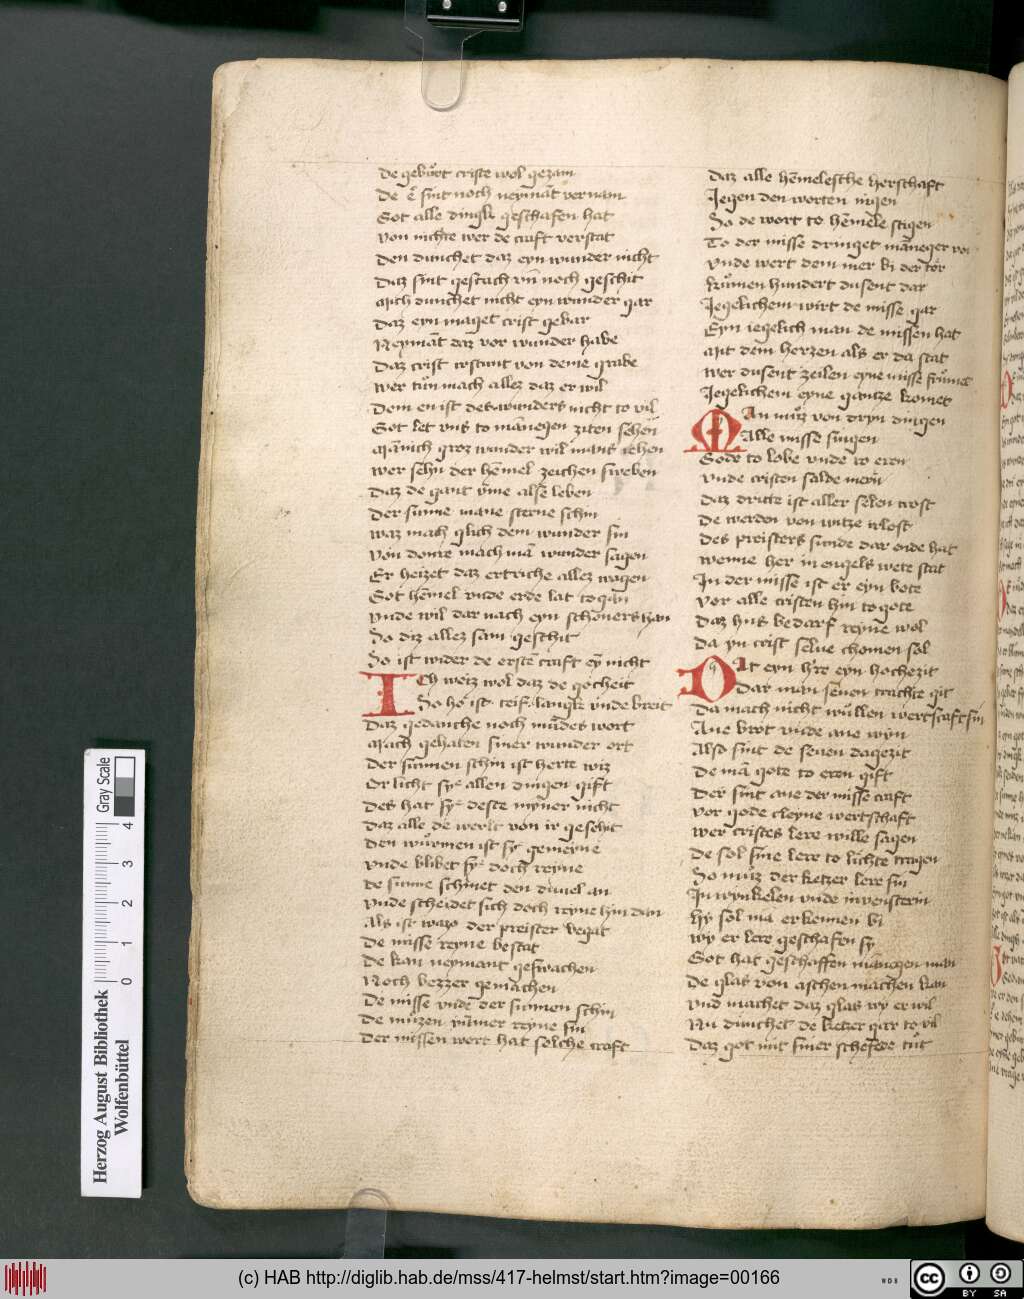 De gebůrt criste wol gezam
De e sint noch neymāt vernam
Got alle dingk geschafen hat
Von nichte wer de craft verstat
Den dunchet daz eyn wunder nicht
Daz sint gescach vn̄ noch geschit
Mich dunchet nicht eyn wunder gar
Daz eyn maget crist gebar
Neymāt daz vor wunder habe
Daz crist irstunt von deme grabe
Wer tůn mach allez daz er wil
Dem en ist des wunders nicht to vil
Got let vns to mānegen ziten sehen
Mānich groz wunder wil mans iehen
Wer sehn der hēmel zeichen sweben
Daz de gant ym̄e alse leben
Der sunne mane sterne schin
Waz mach glich dem wunder sin
Von donre mach mā wunder sagen
Er heizet daz ertriche allez wagen
Got hēmel vnde erde lat togan
Vnde wil dar nach eyn schoners han
So diz allez sam geschit
So ist wider de ersten craft ey nicht
Ich weiz wol daz de gotheit
So ho ist teif langk vnde breit
Daz gedanche noch mūdes wort
Mach gehalen siner wunder ort
Der sunnen schin ist herte wiz
Er licht sye allen dingen gift
Des hat sye deste myner nicht
Daz alle de werlt von ir geschit
Den wůrmen ist sye gemeyne
Vnde blibet sye doch reyne
De sunne schinet den duuel an
Vnde scheidet sich doch reyne hin dan
Als ist waz der preister begat
De misse reyne bestat
De kan neymant geswachen
Noch bezzer gemachen
De misse vnde der sunnen schin
De muzen ymmer reyne sin
Der missen wort hat solche craft
Daz alle hēmelesche herschaft
Jegen den worten nigen
So de wort to hēmele stigen
To der misse dringet māneger vor
Vnde wert dem mer bi der tor
Kůmen hundert dusent dar
Jegelichem wirt de misse gar
Eyn iegelich man de missen hat
Mit dem herzen als er da stat
Wer dusent zeilen eyne misse frůmet
Jegelichem eyne gantze komet
Man můz von dryn dingen
Alle misse singen
Gode to lobe vnde to eren
Vnde cristen salde meren
Daz dritte ist aller selen trost
De werden von witze irlost
Des preisters sunde dar ende hat
Wenne her in engels wete stat
In der misse ist er eyn bote
Vor alle cristen hin to gote
Daz hus bedarf reyne wol
Da yn crist selue chomen sol
Dat eyn h're eyn hochezit
Dar man senen trachte git
Da mach nicht wůllen wertscaft sin
Ane brot vnde ane wyn
Also sint de seuen dagezit
De mā gote to eren gift
Der sint ane der misse craft
Vor gode cleyne wertschaft
Wer cristes lere wille sagen
De sol sine lere to lichte tragen
So můz der ketzer lere sin
In wynkelen vnde in venstrin
Hy sol mā erkennen bi
Wy er lere geschafen sy
Got hat geschaffen mānegen man
De glas von aschen machen kan
Vnd machet daz glas wy er wil
Nu dunchet de ketzer gar to vil
Daz got mit siner schefede tůt
Herzog August Bibliothek
Wolfenbüttel
Gray Scale
0 1 2 3 4
(c) HAB http://diglib.hab.de/mss/417-helmst/start.htm?image=00166
WDB
cc BY SA